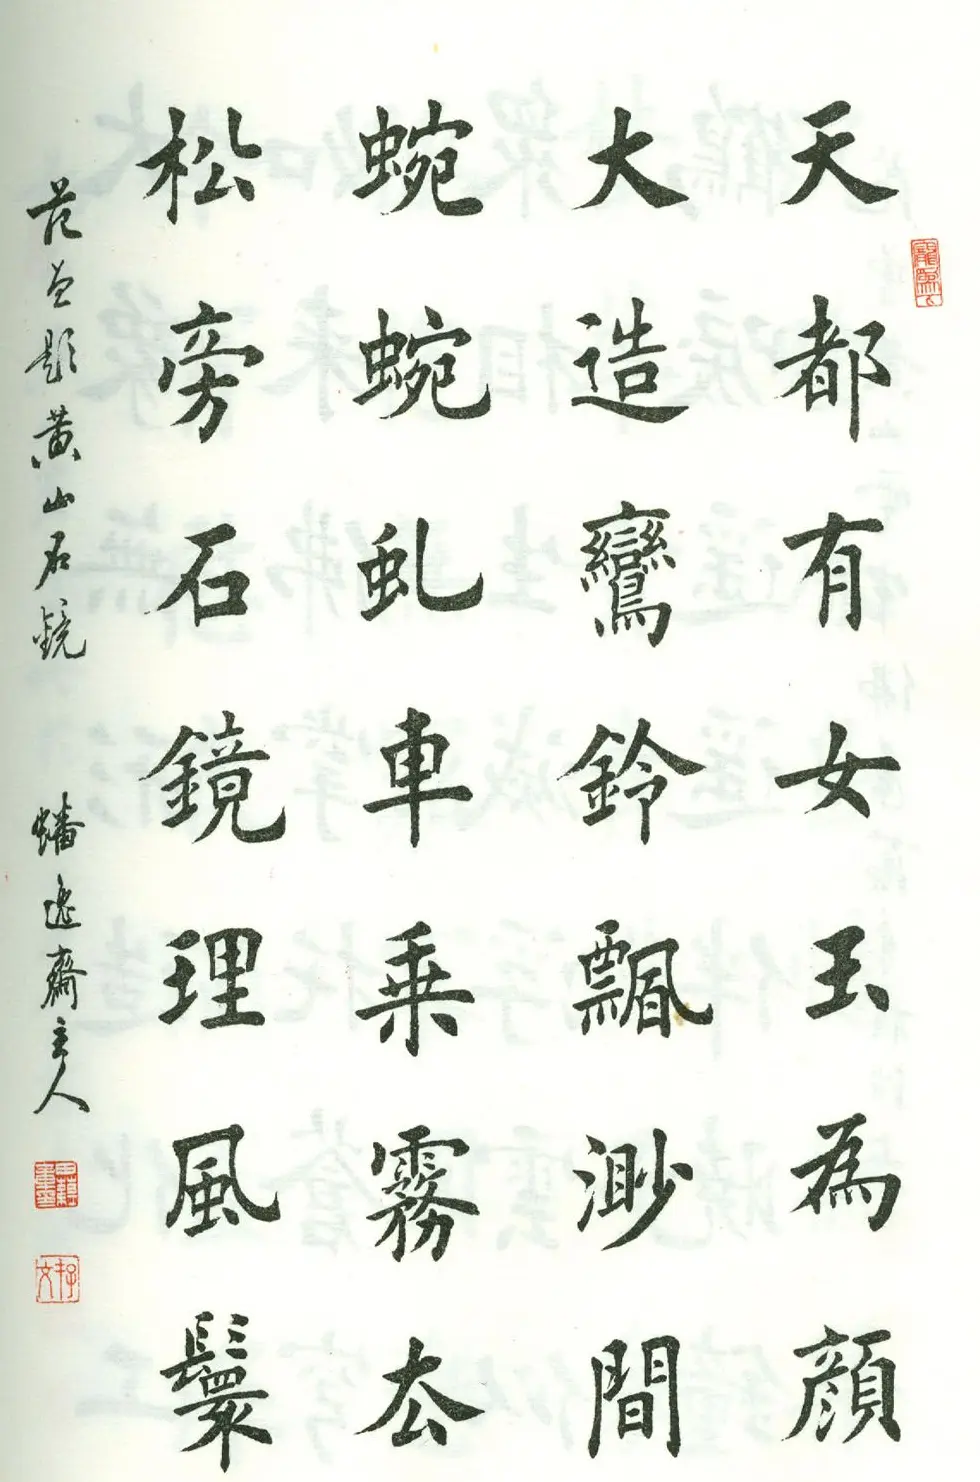 天都有女玉為顏
大造鸞鈴飄渺間
蜿蜿虬車乘霧厺
松旁石鏡理風鬟
題黃山石鏡
蟠齋主人